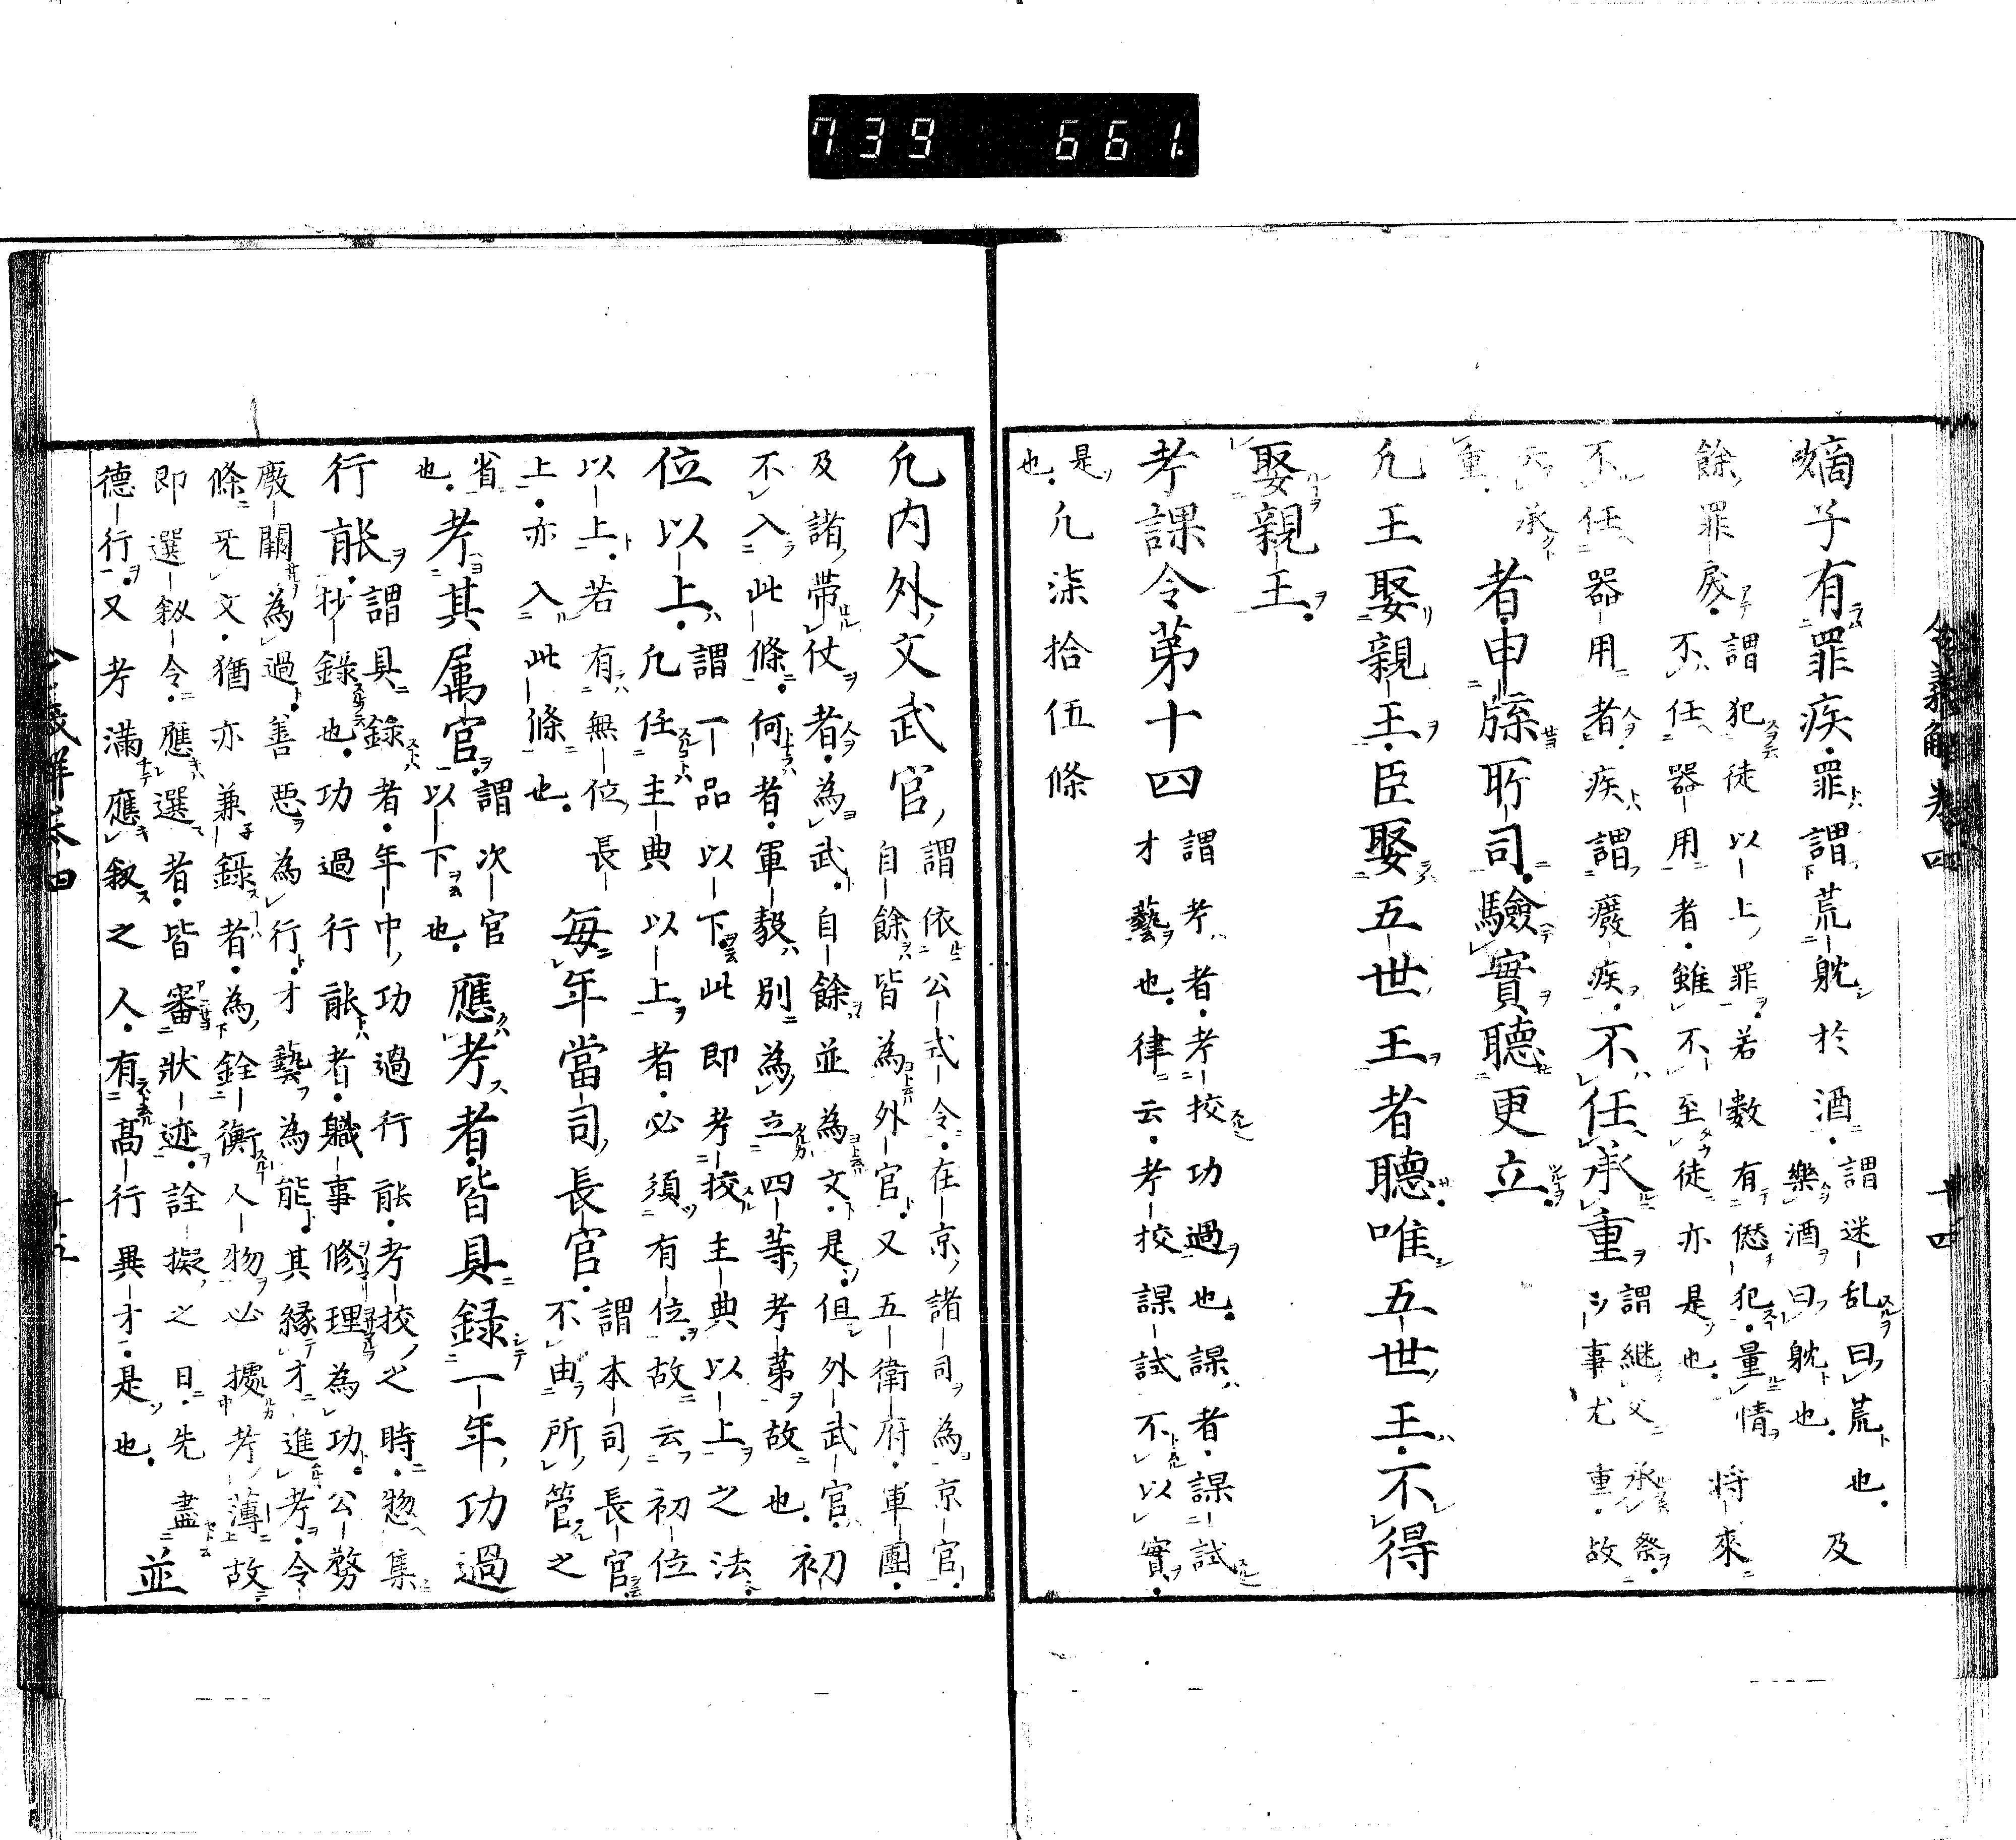 739 661
嫡子有罪疾罪謂荒耽於酒謂迷乱曰荒也
樂酒曰耽也及
餘罪戾謂犯徒以上罪若數有愆犯量情將來
不任器用者雖不至徒亦是也
不任器用者疾謂癈疾不任承重謂継父承祭
事尤重故
云承
重者申牒所司驗實聽更立
凢王娶親王臣娶五世王者聽唯五世王不得
娶親王
考課令第十四謂考者考校功過也課者課試
才藝也律云考校課試不以實
是
也凢柒拾伍條
凢内外文武官謂依公式令在京諸司為京官
自餘皆為外官又五衛府軍團
及諸帶仗者為武自餘並為文是但外武官
不入此條何者軍毅別為立四等考第故也初
位以上謂一品以下此即考校主典以上之法
凢任主典以上者必須有位故云初位
以上若有無位長
上亦入此條也毎年當司長官謂本司長官
不由所管之
省考其属官謂次官
以下也應考者皆具録一年功過
也
行能謂具録者年中功過行能考校之時惣集
抄録也功過行能者職事修理為功公務
癈闕為過善惡為行才藝為能其縁才進考令
條旡文猶亦兼録者為銓衡人物必據考薄故
即選叙令應選者皆審狀迹詮擬之日先盡
德行又考滿應叙之人有髙行異才是也並
令義解卷四 十四
令義解卷四 十五